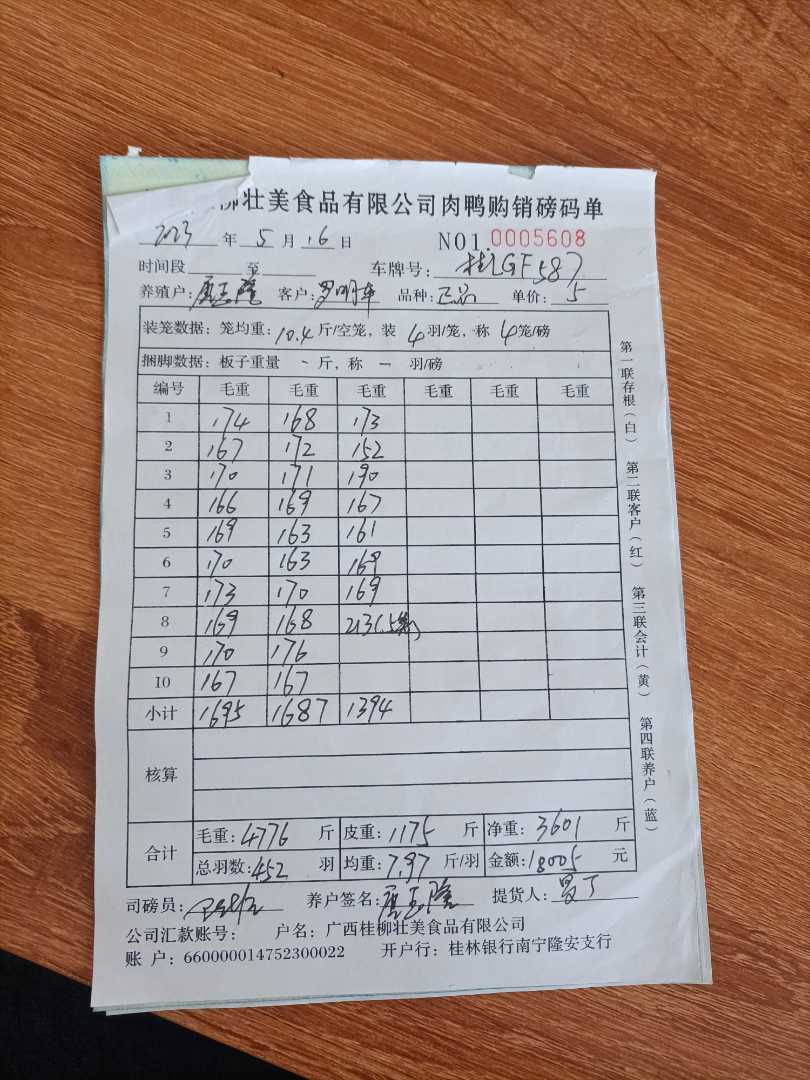 柳壮美食品有限公司肉鸭购销磅码单
2023 年 5 月 16 日 NO1. 0005608
时间段 至 车牌号: 桂GF587
养殖户: 客户: 罗明车 品种: 正品 单价: 5
装笼数据: 笼均重: 10.4 斤/空笼, 装 4 羽/笼, 称 4 笼/磅
捆脚数据: 板子重量 - 斤, 称 - 羽/磅
编号 毛重 毛重 毛重 毛重 毛重 毛重
1 174 168 173
2 167 172 152
3 170 171 190
4 166 169 167
5 169 163 161
6 170 163 169
7 173 170 169
8 169 168 213(5笼)
9 170 176
10 167 167
小计 1695 1687 1394
核算
合计 毛重: 4776 斤 皮重: 1175 斤 净重: 3601 斤
总羽数: 452 羽 均重: 7.97 斤/羽 金额: 18005 元
司磅员: 养户签名: 提货人:
公司汇款账号: 户名: 广西桂柳壮美食品有限公司
账 户: 660000014752300022 开户行: 桂林银行南宁隆安支行
第一联存根(白) 第二联客户(红) 第三联会计(黄) 第四联养户(蓝)